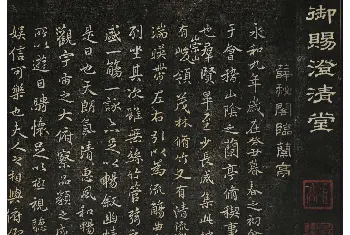 御賜澄清堂
臨蘭亭
永和九年歲在癸丑暮春之初會
于會稽山陰之蘭亭脩禊事
也羣賢畢至少長咸集此地
有崇山峻領茂林脩竹又有清流
湍暎帶左右引以為流觴曲
列坐其次雖無絲竹管弦
盛一觴一詠亦足以暢敘幽情
是日也天朗氣清惠風和暢
觀宇宙之大俯察品類之盛
所以遊目騁懷足以極視聽
娛信可樂也夫人之相與俯仰